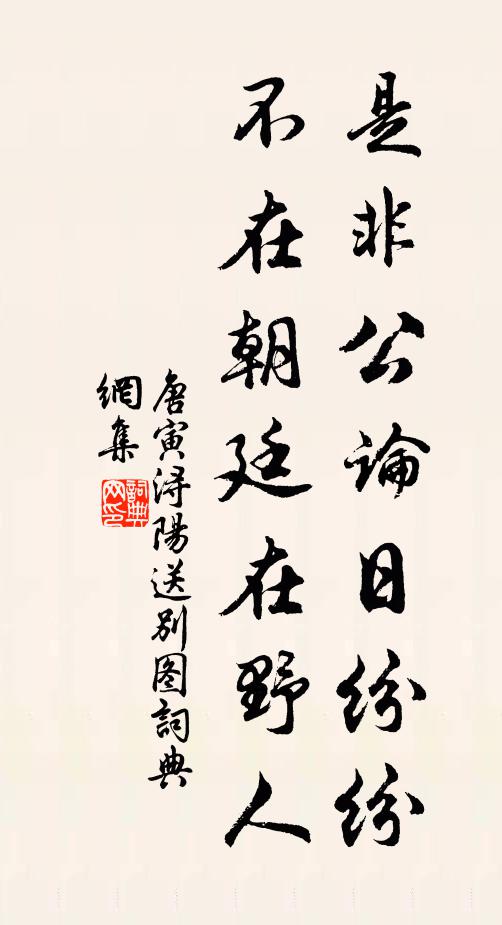 是非公論日紛紛
不在朝廷在野人
唐寅潯陽送別图詞典
網集
詞典
网印